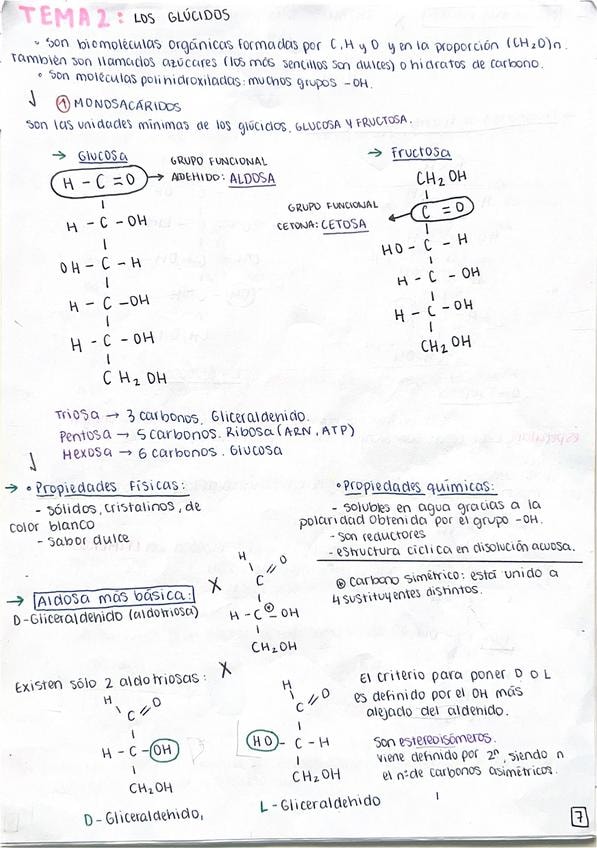 TEMA 2: LOS GLÚCIDOS
• Son biomoléculas orgánicas formadas por C, H y O y en la proporción (CH2O)n.
También son llamados azúcares (los más sencillos son dulces) o hidratos de carbono.
• Son moléculas polihidroxiladas: muchos grupos -OH.
↓ ① MONOSACÁRIDOS
Son las unidades mínimas de los glúcidos, GLUCOSA Y FRUCTOSA.
→ Glucosa
GRUPO FUNCIONAL
H - C = O → ALDEHIDO: ALDOSA
H - C - OH
OH - C - H
H - C - OH
H - C - OH
CH2 OH
→ Fructosa
CH2 OH
GRUPO FUNCIONAL
C = O
CETONA: CETOSA
HO - C - H
H - C - OH
H - C - OH
CH2 OH
Triosa → 3 carbonos. Gliceraldehido.
Pentosa → 5 carbonos. Ribosa (ARN, ATP)
Hexosa → 6 carbonos. Glucosa
→ • Propiedades Físicas:
- Sólidos, cristalinos, de
color blanco
- Sabor dulce
• Propiedades químicas:
- Solubles en agua gracias a la
polaridad obtenida por el grupo -OH.
- Son reductores
- Estructura cíclica en disolución acuosa.
→ Aldosa más básica:
D-Gliceraldehido (aldotriosa)
H O
C
H - C - OH
CH2OH
⊛ Carbono simétrico: está unido a
4 sustituyentes distintos.
Existen sólo 2 aldotriosas:
H O
C
H - C - OH
CH2OH
D - Gliceraldehido,
H O
C
HO - C - H
CH2OH
L - Gliceraldehido
El criterio para poner D o L
es definido por el OH más
alejado del aldehido.
Son estereoisómeros.
Viene definido por 2ⁿ, siendo n
el nº de carbonos asimétricos.
7